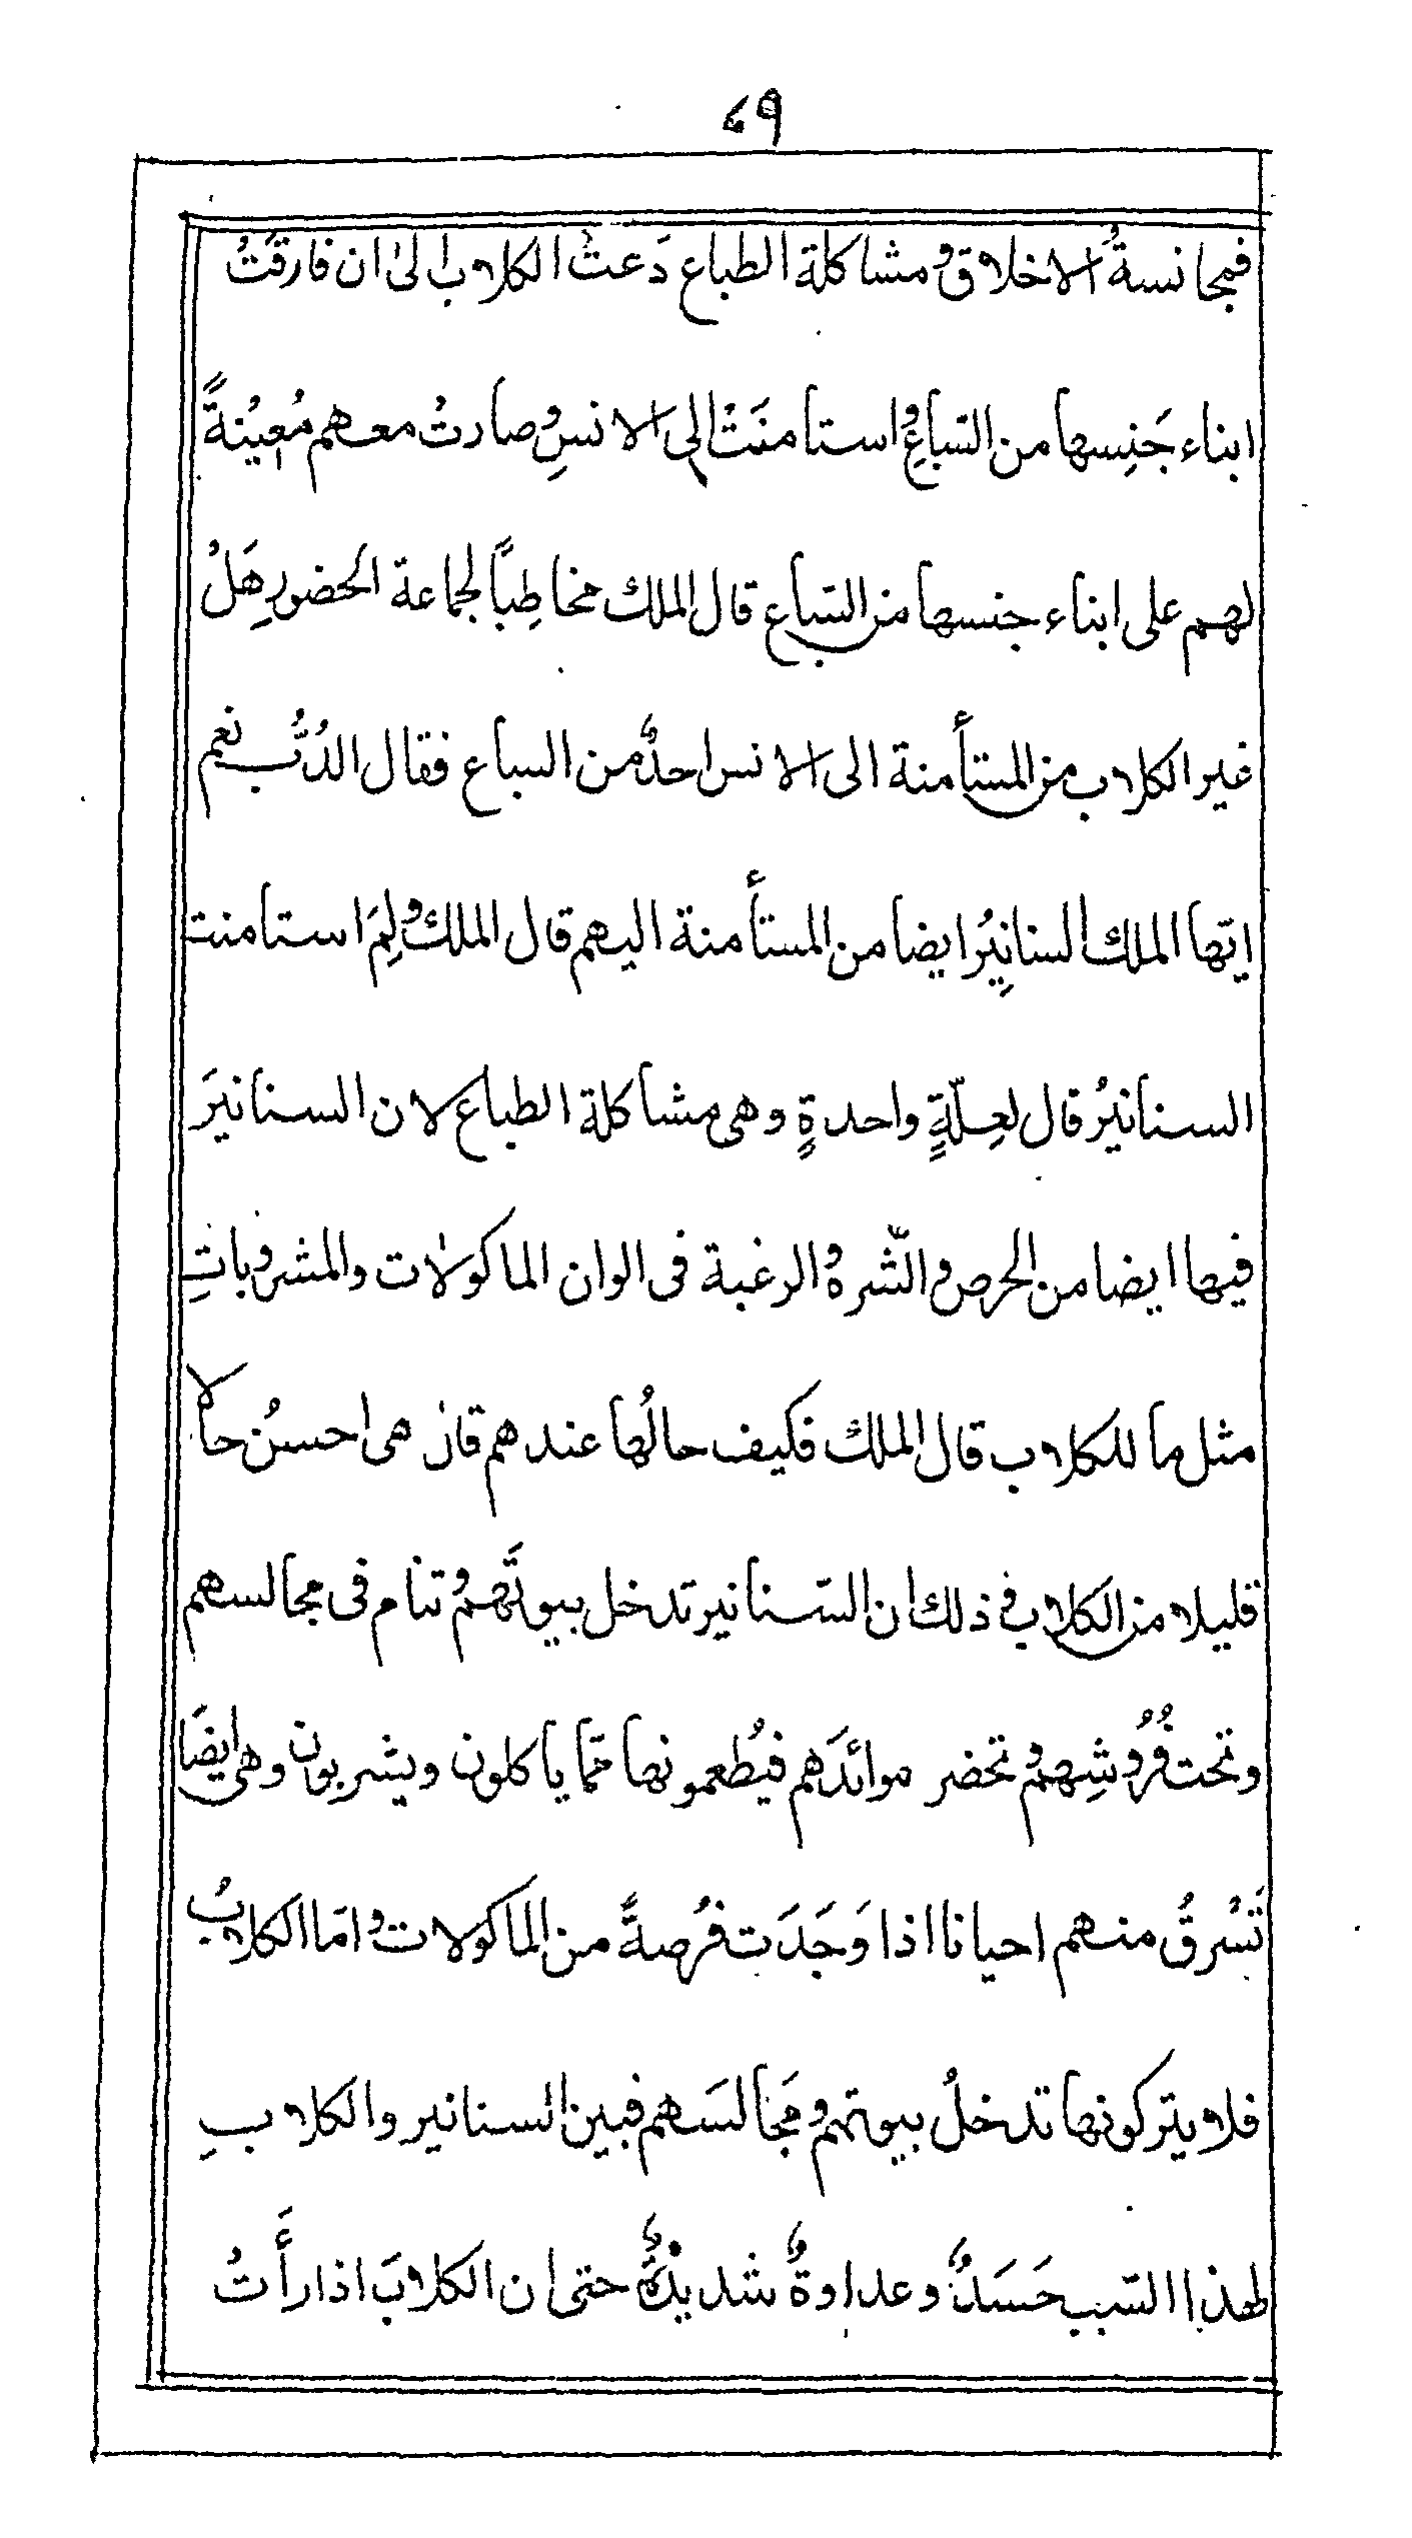 ٤٩
فمجانسةُ الاخلاق ومشاكلة الطباع دَعتْ الكلاب الىٰ ان فارقَتْ
ابناء جَنِسها من السّباعِ واستامنَتْ اِلى الانسِ وصارتْ معهم مُعِيْنةً
لهم على ابناء جنسها من السّباع قال الملك مخاطِباً لجماعة الحضورِ هَلْ
غير الكلاب من المستأمنة الى الانس احدٌ من السباع فقال الدُّبُّ نعم
ايّها الملك السنانِيْرُ ايضا من المستأمنة اليهم قال الملك ولِمَ استامنت
السنانيْرُ قال لعِلّةٍ واحدةٍ وهى مشاكلة الطباع لان السنانيرَ
فيها ايضا من الحرص والشّره والرغبة فى الوان الماكولات والمشروباتِ
مثل ما للكلاب قال الملك فكيف حالُها عندهم قال هى احسنُ حالا
قليلا من الكلاب فى ذلك ان السّنانير تدخل بيوتَهم وتنام فى مجالسهم
وتحت فُرُوشِهم وتحضر موائدَهم فيُطعمونها ممّا ياكلون ويشربون وهى ايضَا
تَسْرقُ منهم احيانا اذا وَجَدَت فُرصةً من الماكولات وامّا الكلابُ
فلا يتركونها تدخلُ بيوتهم ومَجالسَهم فبين السنانير والكلابِ
لهذا السّبب حَسَدٌ وعداوةٌ شديْدةٌ حتى ان الكلابَ اذا رأَتْ